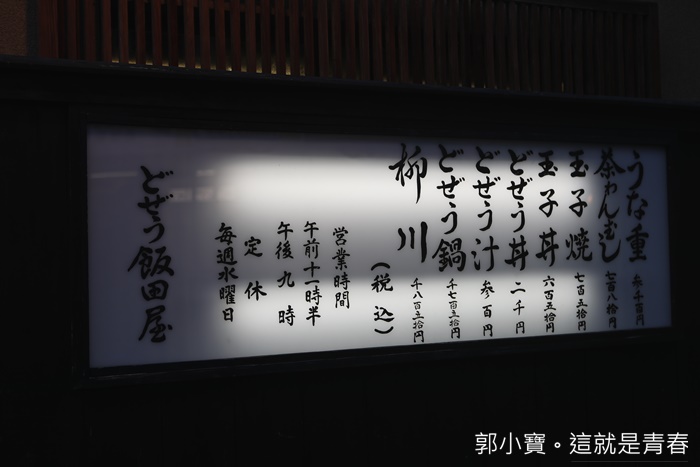 うな重 参千百円
茶わんむし 七百八拾円
玉子焼 七百五拾円
玉子丼 六百五拾円
どぜう丼 二千円
どぜう汁 参百円
どぜう鍋 千七百五拾円
柳川 千八百五拾円
(税込)
営業時間
午前十一時半
午後九時
定休
毎週水曜日
どぜう飯田屋
郭小寶。這就是青春